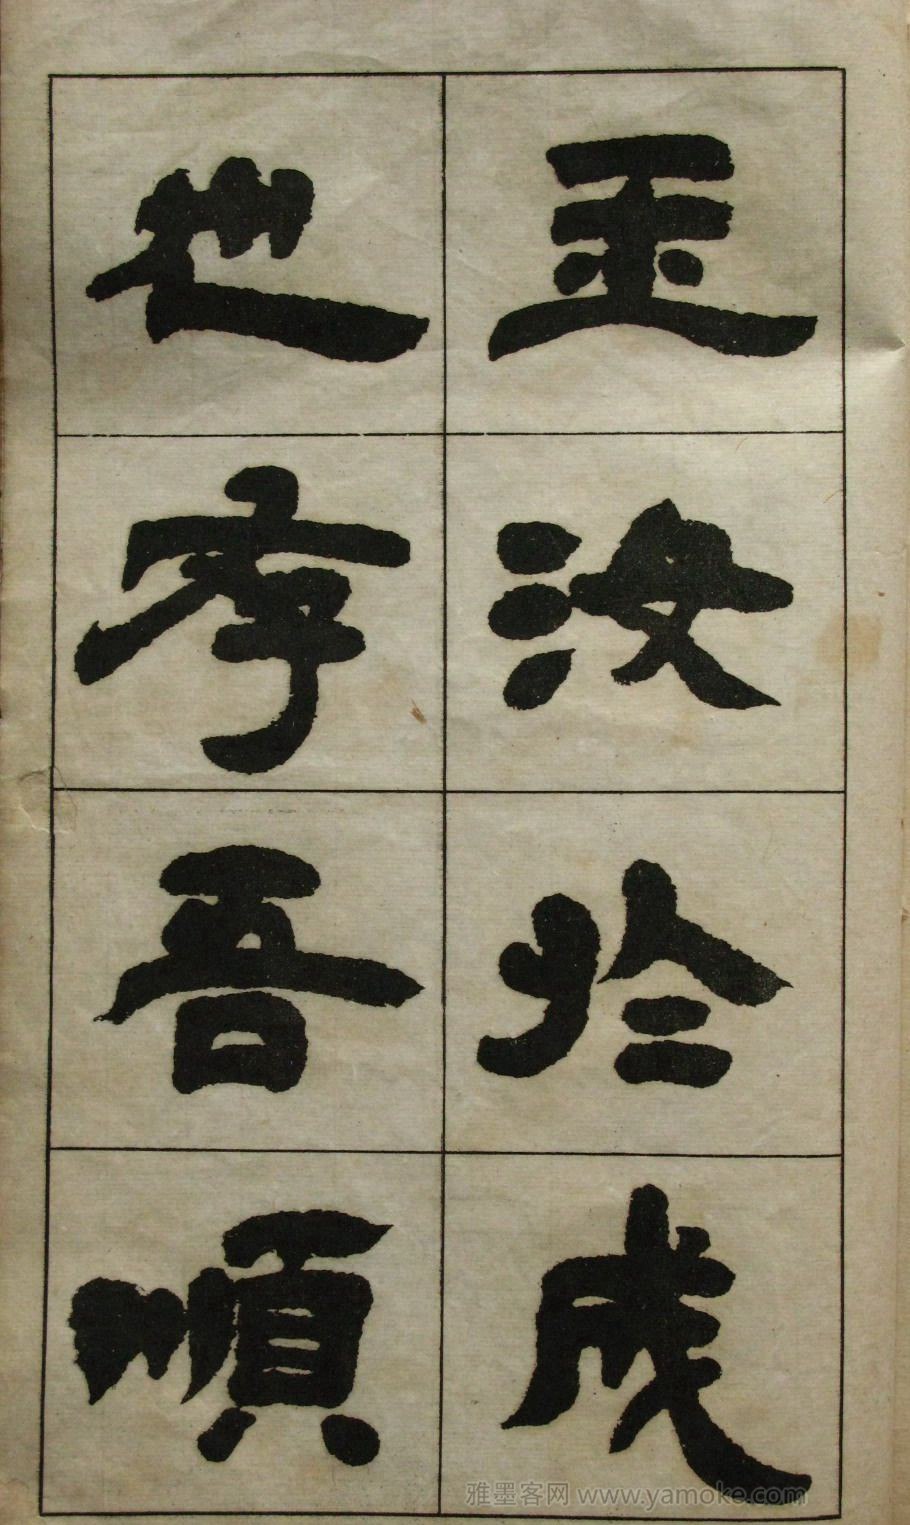 玉汝於成
也存吾順
雅墨客网 www.yamoke.com